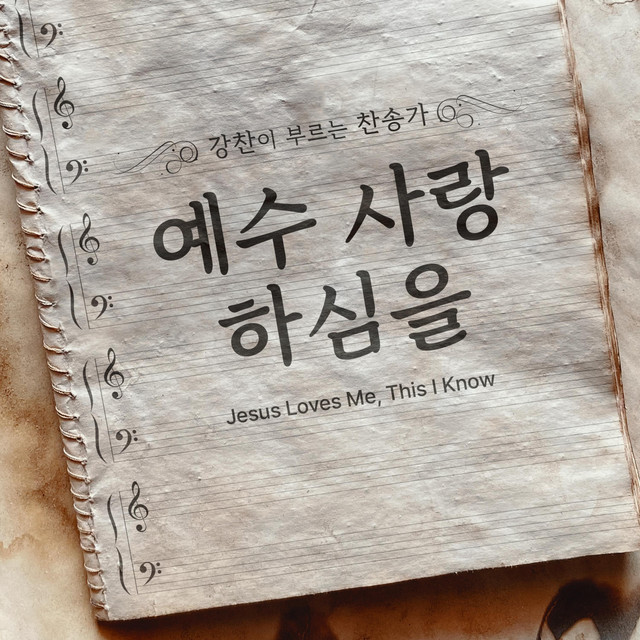 강찬이 부르는 찬송가
예수 사랑
하심을
Jesus Loves Me, This I Know